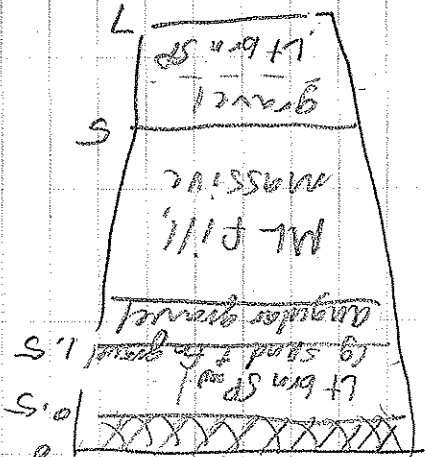 0
0.5
Lt brn SP w/
lg sand & fn gravel 1.5
angular gravel
ML fill,
massive
5
gravel
Lt brn SP
7